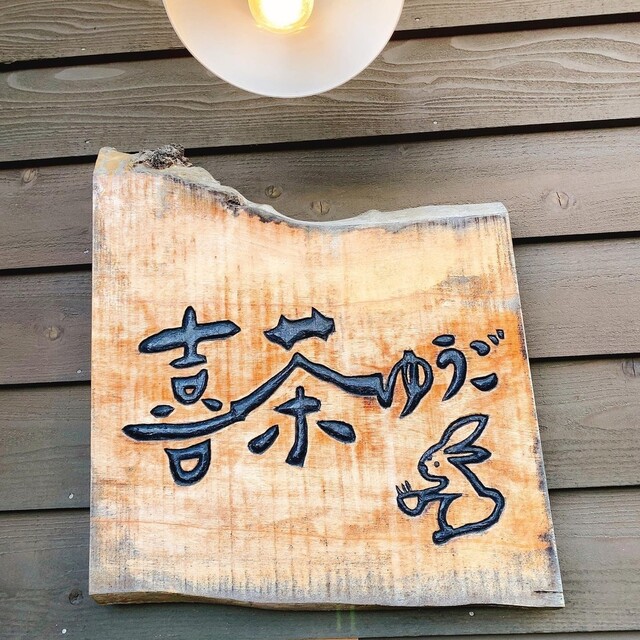 喜茶ゆうご